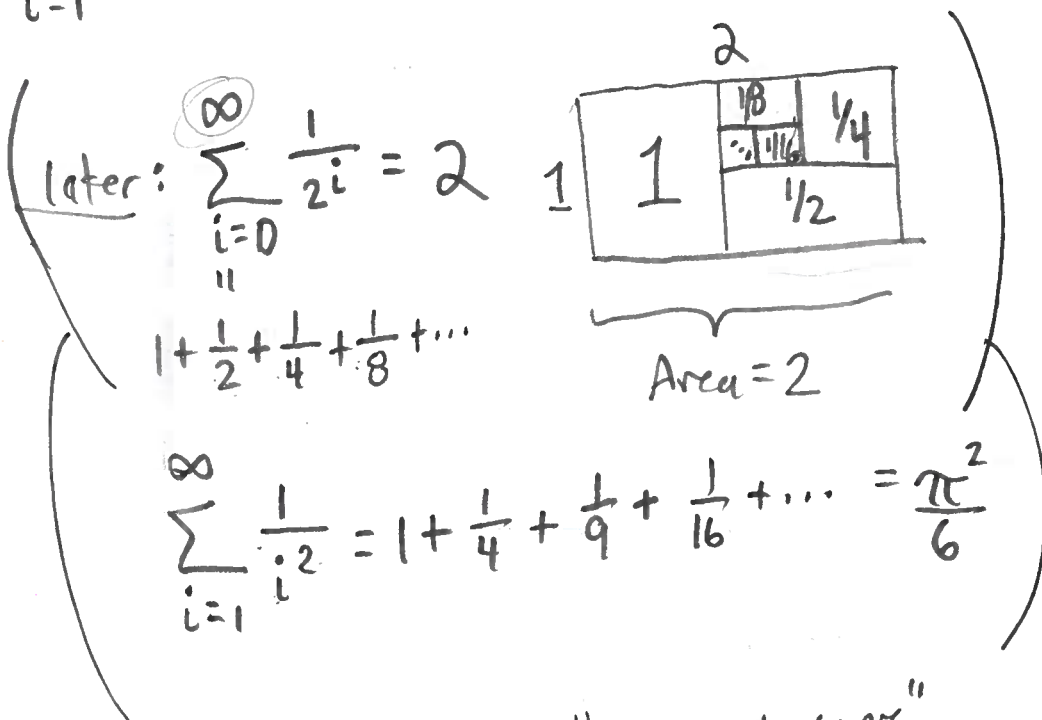 i=1
later: ∞∑i=0 1/2^i = 2
"
1 + 1/2 + 1/4 + 1/8 + ...
2
1
1
1/8
1/4
⋱
1/16
1/2
Area = 2
∞∑i=1 1/i^2 = 1 + 1/4 + 1/9 + 1/16 + ... = π^2/6